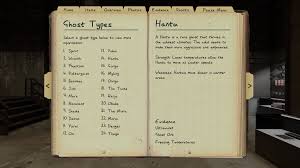 Home Items Overview Photos Evidence Ghosts Pause Menu
Ghost Types
Select a ghost type below to view more
information
1. Spirit
2. Wraith
3. Phantom
4. Poltergeist
5. Banshee
6. Jinn
7. Mare
8. Revenant
9. Shade
10. Demon
11. Yurei
12. Oni
13. Yokai
14. Hantu
15. Goryo
16. Myling
17. Onryo
18. The Twins
19. Raiju
20. Obake
21. The Mimic
22. Moroi
23. Deogen
24. Thaye
Hantu
A Hantu is a rare ghost that thrives in
the coldest climates. The cold seems to
make them more aggressive and empowered.
Strength: Lower temperatures allow the
Hantu to move at faster speeds.
Weakness: Hantus move slower in warmer
areas.
Evidence:
Ultraviolet
Ghost Orb
Freezing Temperatures